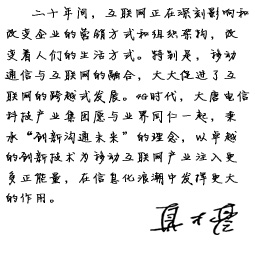 二十年间，互联网正在深刻影响和
改变企业的营销方式和组织架构，改
变着人们的生活方式。特别是，移动
通信与互联网的融合，大大促进了互
联网的跨越式发展。4G时代，大唐电信
科技产业集团愿与业界同仁一起，秉
承“创新沟通未来”的理念，以卓越
的创新技术为移动互联网产业注入更
多正能量，在信息化浪潮中发挥更大
的作用。